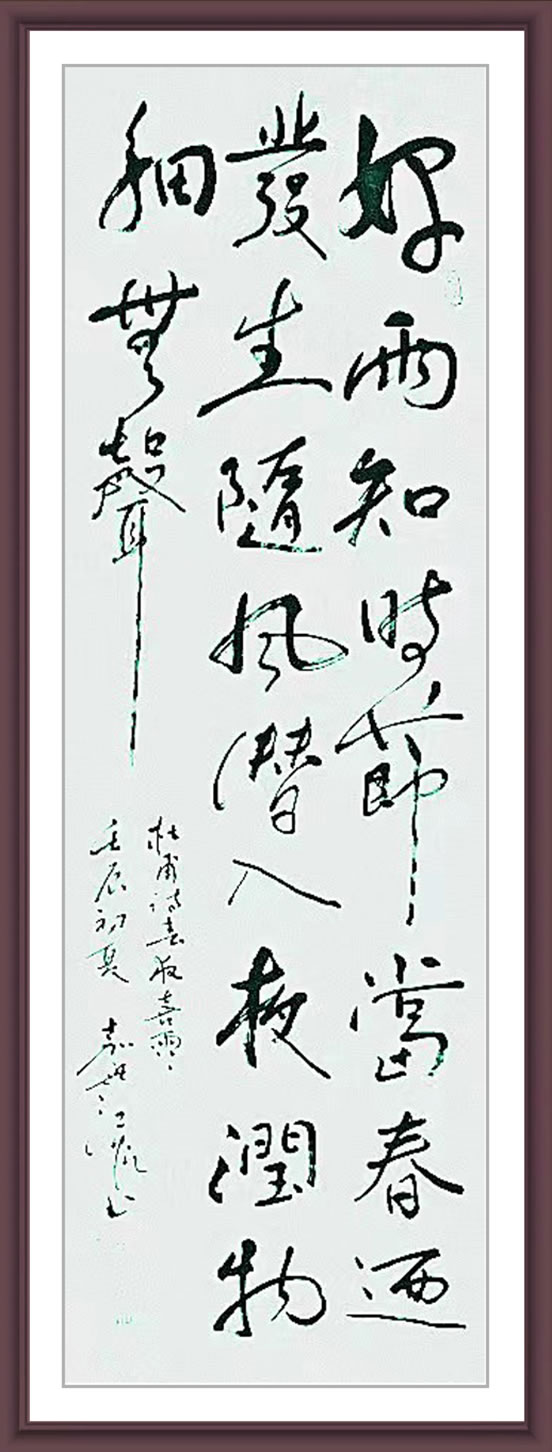 好雨知時節當春迺
發生隨風潜入夜潤物
細無聲
杜甫詩春夜喜雨
壬辰初夏